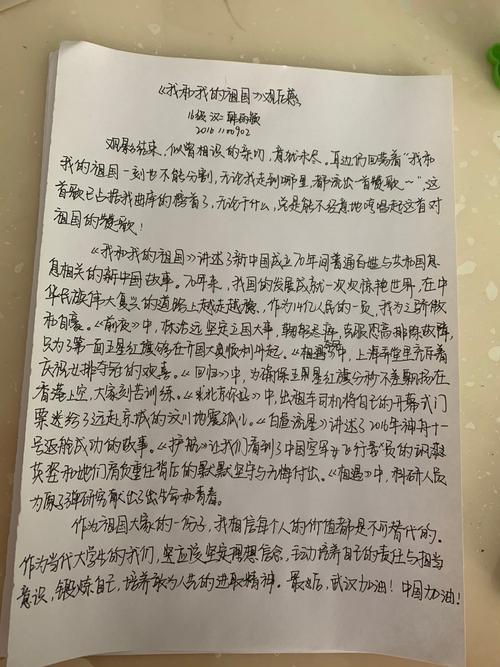 《我和我的祖国》观后感
16级 汉二
2016110902
观影结束，似曾相识的亲切，意犹未尽。耳边仍回荡着“我和
我的祖国一刻也不能分割，无论我走到哪里，都流出一首赞歌～”，这
首歌已占据我曲库的榜首了，无论干什么，总是能不经意地哼唱起这首对
祖国的赞歌！
《我和我的祖国》讲述了新中国成立70年间普通百姓与共和国息
息相关的新中国故事。70年来，我国的发展成就一次次惊艳世界，在中
华民族伟大复兴的道路上越走越稳，作为14亿人民的一员，我为之骄傲
和自豪。《前夜》中，林治远坚定立国大事，克服恐高排除故障，
只为了第一面五星红旗能在开国大典顺利升起。《相遇》中，上海弄堂里充斥着
庆祝女排夺冠的欢喜。《回归》中，为确保五星红旗分秒不差飘扬在
香港上空，大家刻苦训练。《北京你好》中，出租车司机将自己的开幕式门
票送给了远赴京城的汶川地震孤儿。《白昼流星》讲述了2016年神舟十一
号返航成功的故事。《护航》让我们看到了中国空军女飞行员的飒爽
英姿和她们肩负重任背后的默默坚守与无悔付出。《相遇》中，科研人员
为原子弹研究献出了生命和青春。
作为祖国大家的一份子，我相信每个人的价值都是不可替代的。
作为当代大学生的我们，更应该坚定理想信念，主动培养自己的责任与担当
意识，锻炼自己，培养敢为人先的进取精神。最后，武汉加油！中国加油！